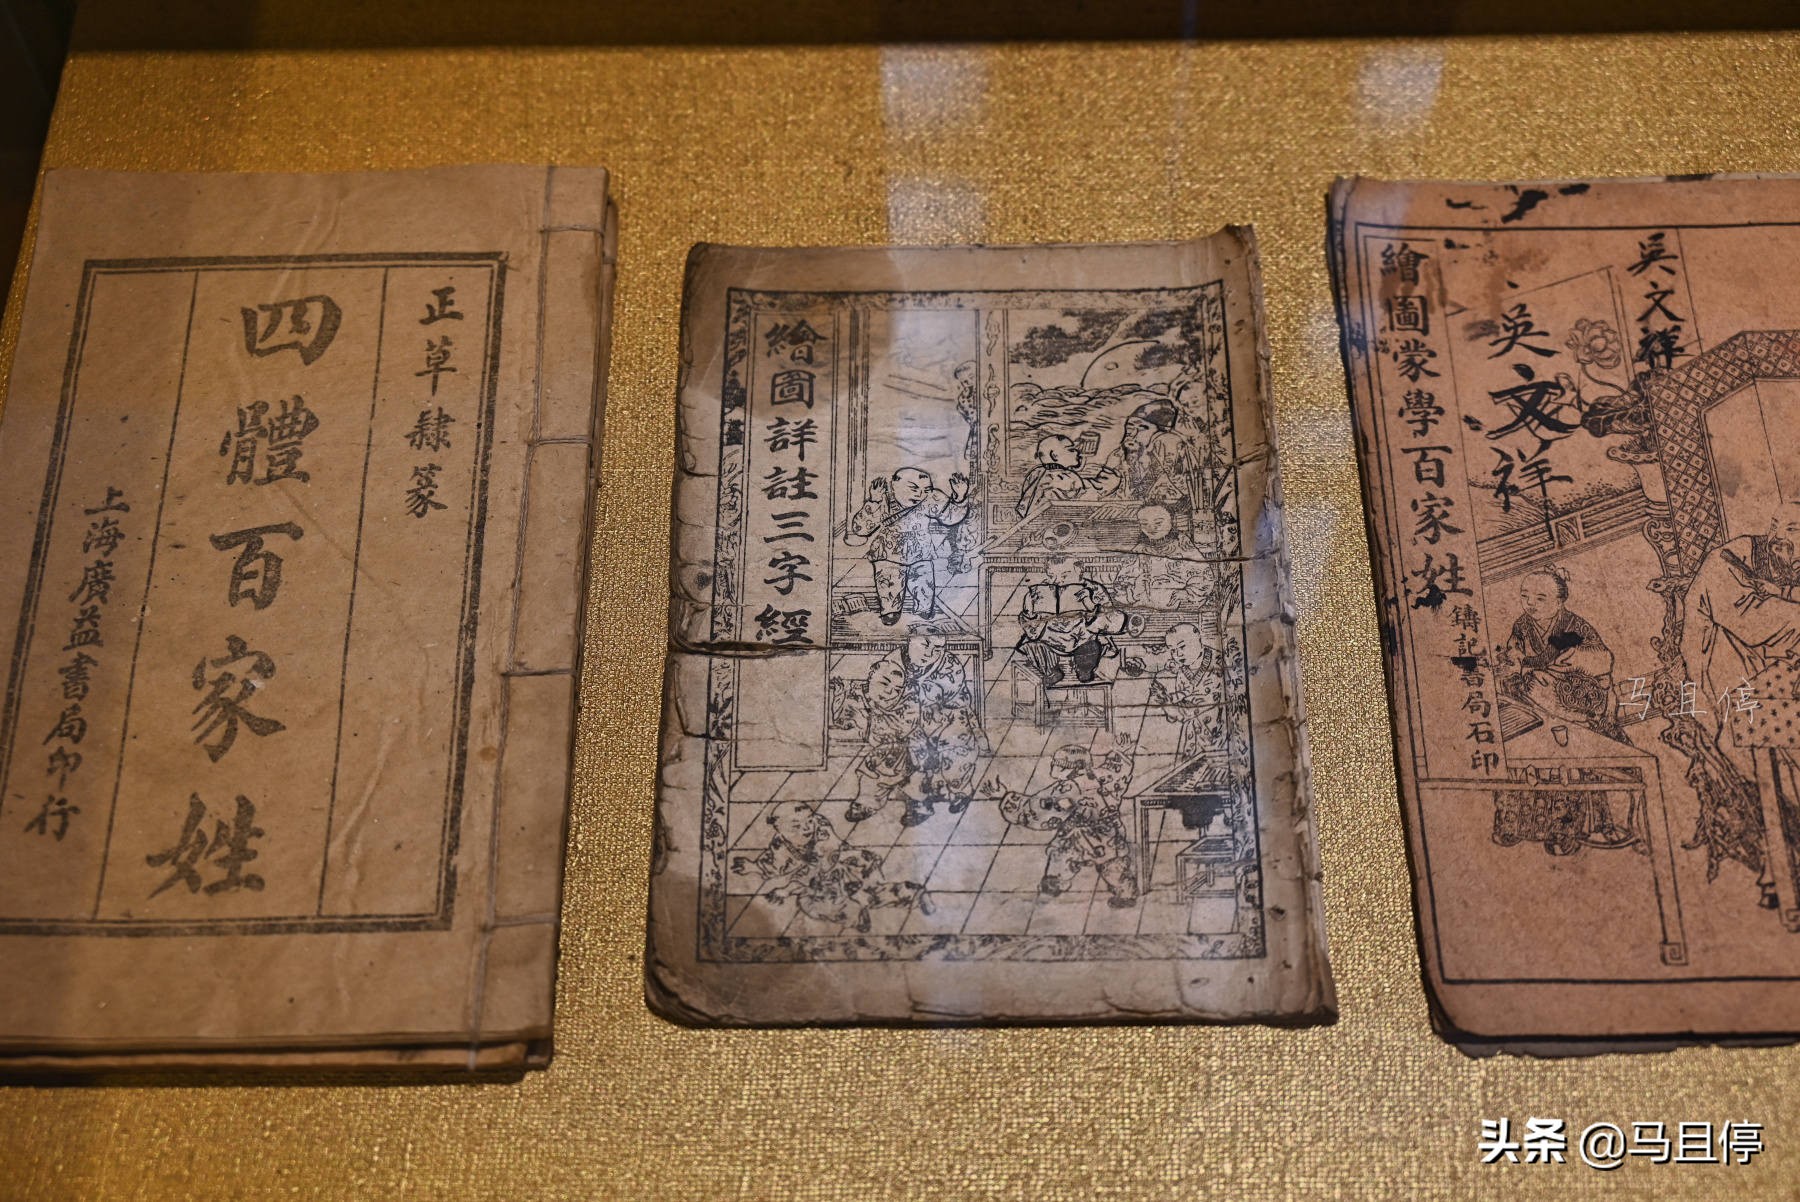 正草隸篆
四體百家姓
上海廣益書局印行
繪圖詳註三字經
吳文祥
吳文祥
繪圖蒙學百家姓
鑄記書局石印
马且停
头条 @马且停